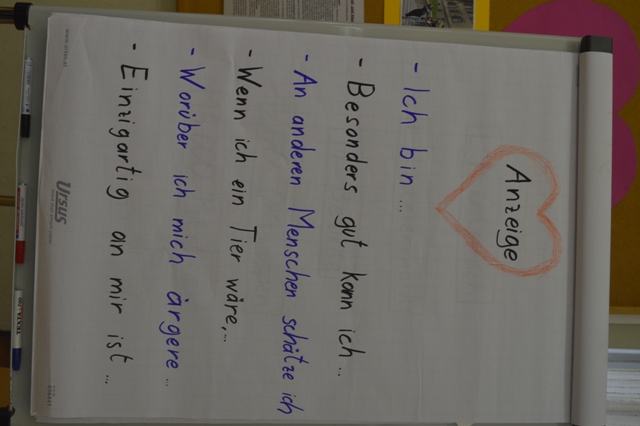 Anzeige
- Ich bin ...
- Besonders gut kann ich ...
- An anderen Menschen schätze ich
- Wenn ich ein Tier wäre,...
- Worüber ich mich ärgere ...
- Einzigartig an mir ist ...
www.ursus.at
Ursus